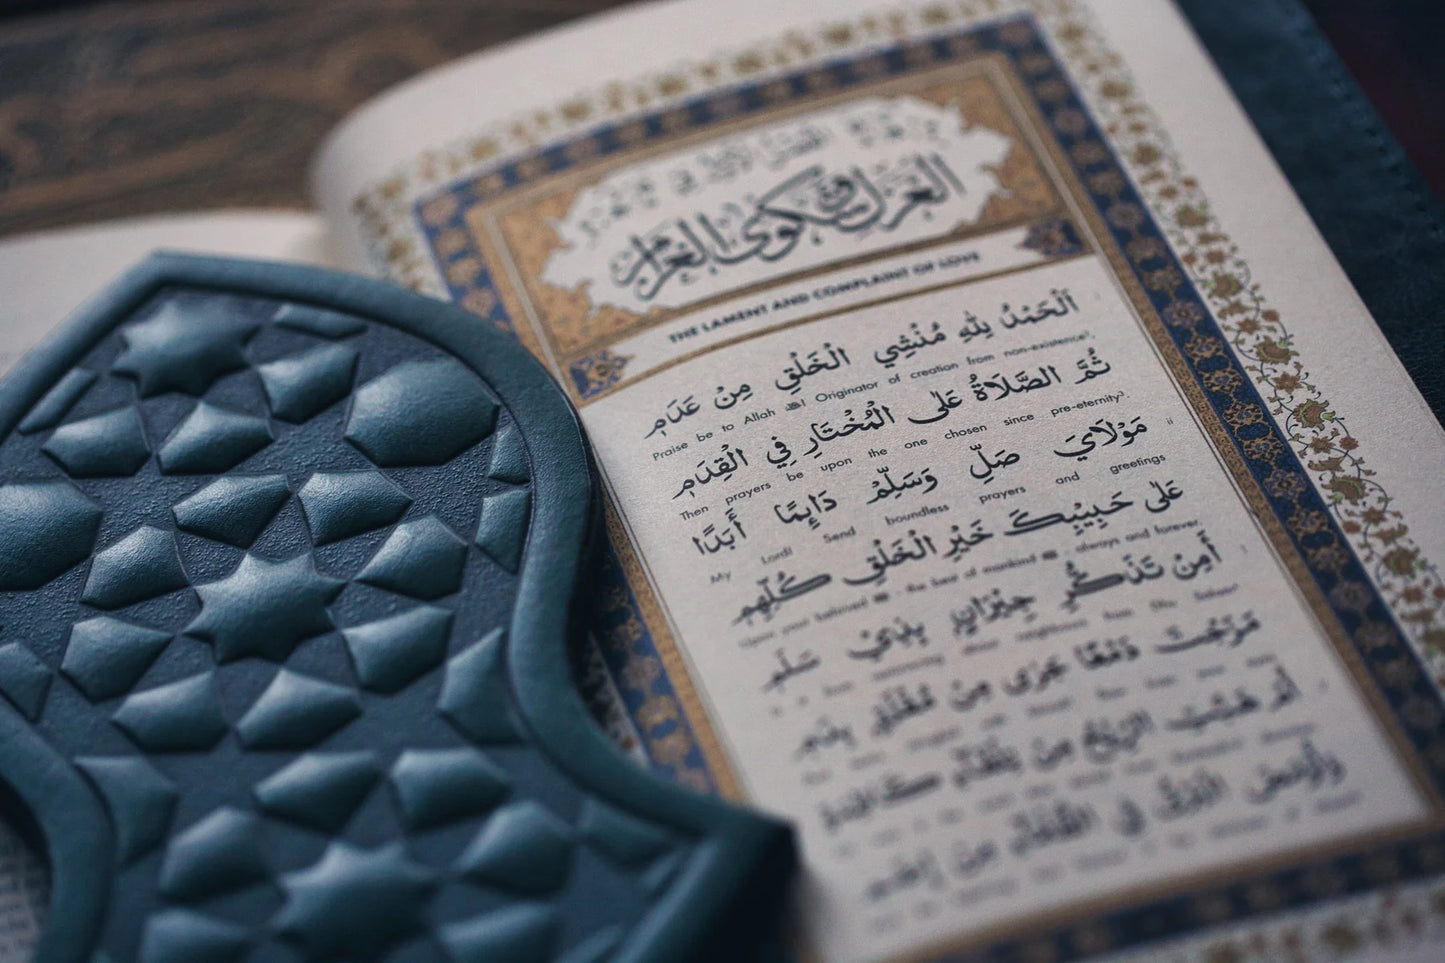 الغزل وشكوى الغرام
THE LAMENT AND COMPLAINT OF LOVE
اَلْحَمْدُ لِلّٰهِ مُنْشِي الْخَلْقِ مِنْ عَدَمِ
Praise be to Allah ﷻ! Originator of creation from non-existence¹,
ثُمَّ الصَّلَاةُ عَلَى الْمُخْتَارِ فِي الْقِدَمِ
Then prayers be upon the one chosen since pre-eternity².
مَوْلَايَ صَلِّ وَسَلِّمْ دَائِمًا أَبَدًا
My Lord! Send boundless prayers and greetings
عَلَى حَبِيبِكَ خَيْرِ الْخَلْقِ كُلِّهِمِ
Upon your beloved ﷺ, the best of mankind ﷺ, always and forever.
أَمِنْ تَذَكُّرِ جِيْرَانٍ بِذِيْ سَلَمِ
مَزَجْتَ دَمْعًا جَرَى مِنْ مُقْلَةٍ بِدَمِ
أَمْ هَبَّتِ الرِّيْحُ مِنْ تِلْقَاءِ كَاظِمَةٍ
وَأَوْمَضَ الْبَرْقُ فِي الظَّلْمَاءِ مِنْ إِضَمِ